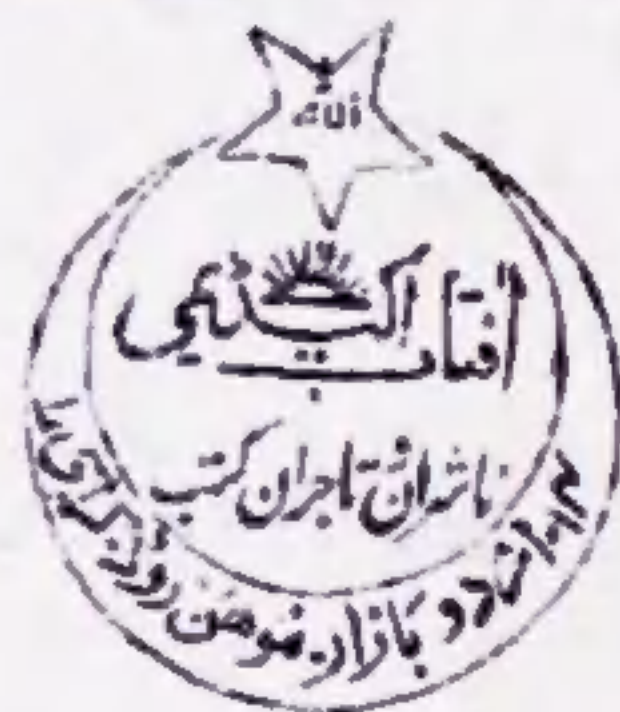 الله
آفتاب اکیڈیمی
ناشران و تاجران کتب
اردو بازار۔ موهن روڈ۔ کراچی ۱